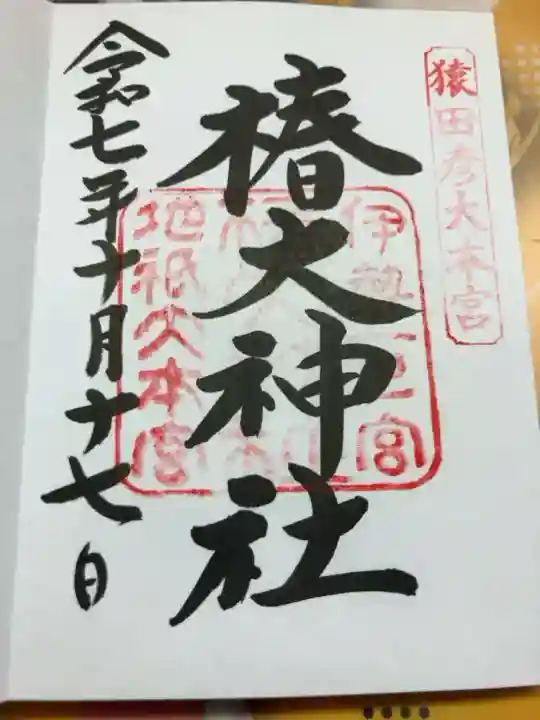 猿田彦大本宮
椿大神社
伊勢一宮
地祇大本宮
令和七年十月十七日